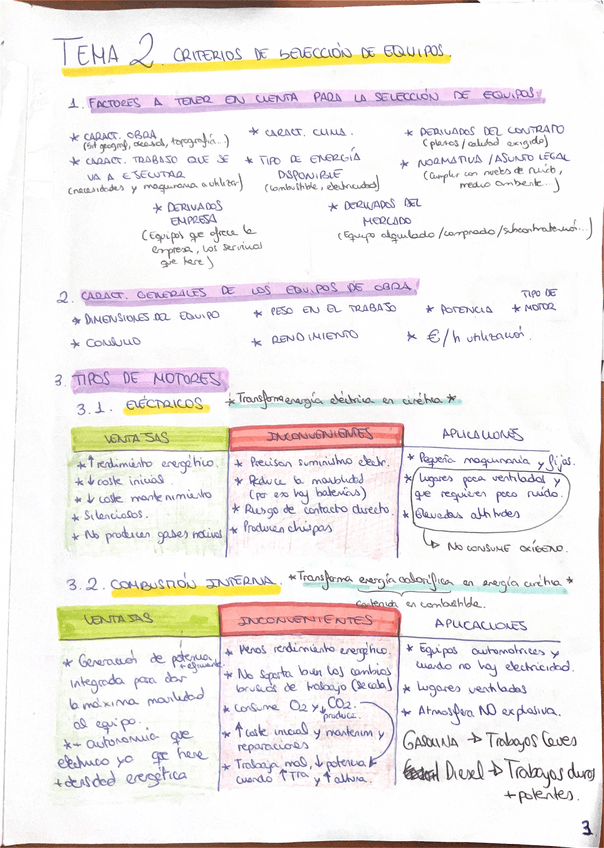 TEMA 2. CRITERIOS DE SELECCIÓN DE EQUIPOS.
1. FACTORES A TENER EN CUENTA PARA LA SELECCIÓN DE EQUIPOS
* CARACT. OBRA
(Sit geográf, accesos, topografía...)
* CARACT. CLIMA.
* DERIVADOS DEL CONTRATO
(plazos/calidad exigida)
* CARACT. TRABAJO QUE SE
VA A EJECUTAR
(necesidades y maquinaria a utilizar)
* TIPO DE ENERGÍA
DISPONIBLE
(combustible, electricidad)
* NORMATIVA/ASUNTO LEGAL
(Cumplir con niveles de ruido,
medio ambiente...)
* DERIVADOS
EMPRESA
(Equipos que ofrece la
empresa, los servicios
que tiene)
* DERIVADOS DEL
MERCADO
(Equipo alquilado/comprado/subcontratación...)
2. CARACT. GENERALES DE LOS EQUIPOS DE OBRA
* DIMENSIONES DEL EQUIPO
* PESO EN EL TRABAJO
* POTENCIA
* TIPO DE
MOTOR
* CONSUMO
* RENDIMIENTO
* €/h utilización.
3. TIPOS DE MOTORES
3.1. ELÉCTRICOS
* Transforma energía eléctrica en cinética *
VENTAJAS
* ↑ rendimiento energético.
* ↓ coste inicial.
* ↓ coste mantenimiento
* Silenciosos.
* No producen gases nocivos
INCONVENIENTES
* Precisan suministro electr.
* Reduce la movilidad
(por eso hay baterías)
* Riesgo de contacto directo.
* Producen chispas
APLICACIONES
* Pequeña maquinaria y fijos.
* Lugares poco ventilados y
que requieren poco ruido.
* Elevadas altitudes
↳ NO CONSUME OXÍGENO.
3.2. COMBUSTIÓN INTERNA.
* Transforma energía calorífica en energía cinética *
contenida en combustible.
VENTAJAS
* Generación de potencia
integrada para dar
la máxima movilidad
al equipo.
* + autonomía que
eléctrico ya que tiene
+ densidad energética
INCONVENIENTES
* Menos rendimiento energético.
* No soporta bien los cambios
bruscos de trabajo
* Consume O2 y ↓ CO2.
produce.
* ↑ coste inicial y mantenim y
reparaciones
* Trabaja mal, ↓ potencia
cuando ↑ Tra y ↑ altura.
APLICACIONES
* Equipos automotrices y
cuando no hay electricidad.
* Lugares ventilados
* Atmosfera NO explosiva.
GASOLINA → Trabajos leves
Diesel → Trabajos duros
+ potentes.
3